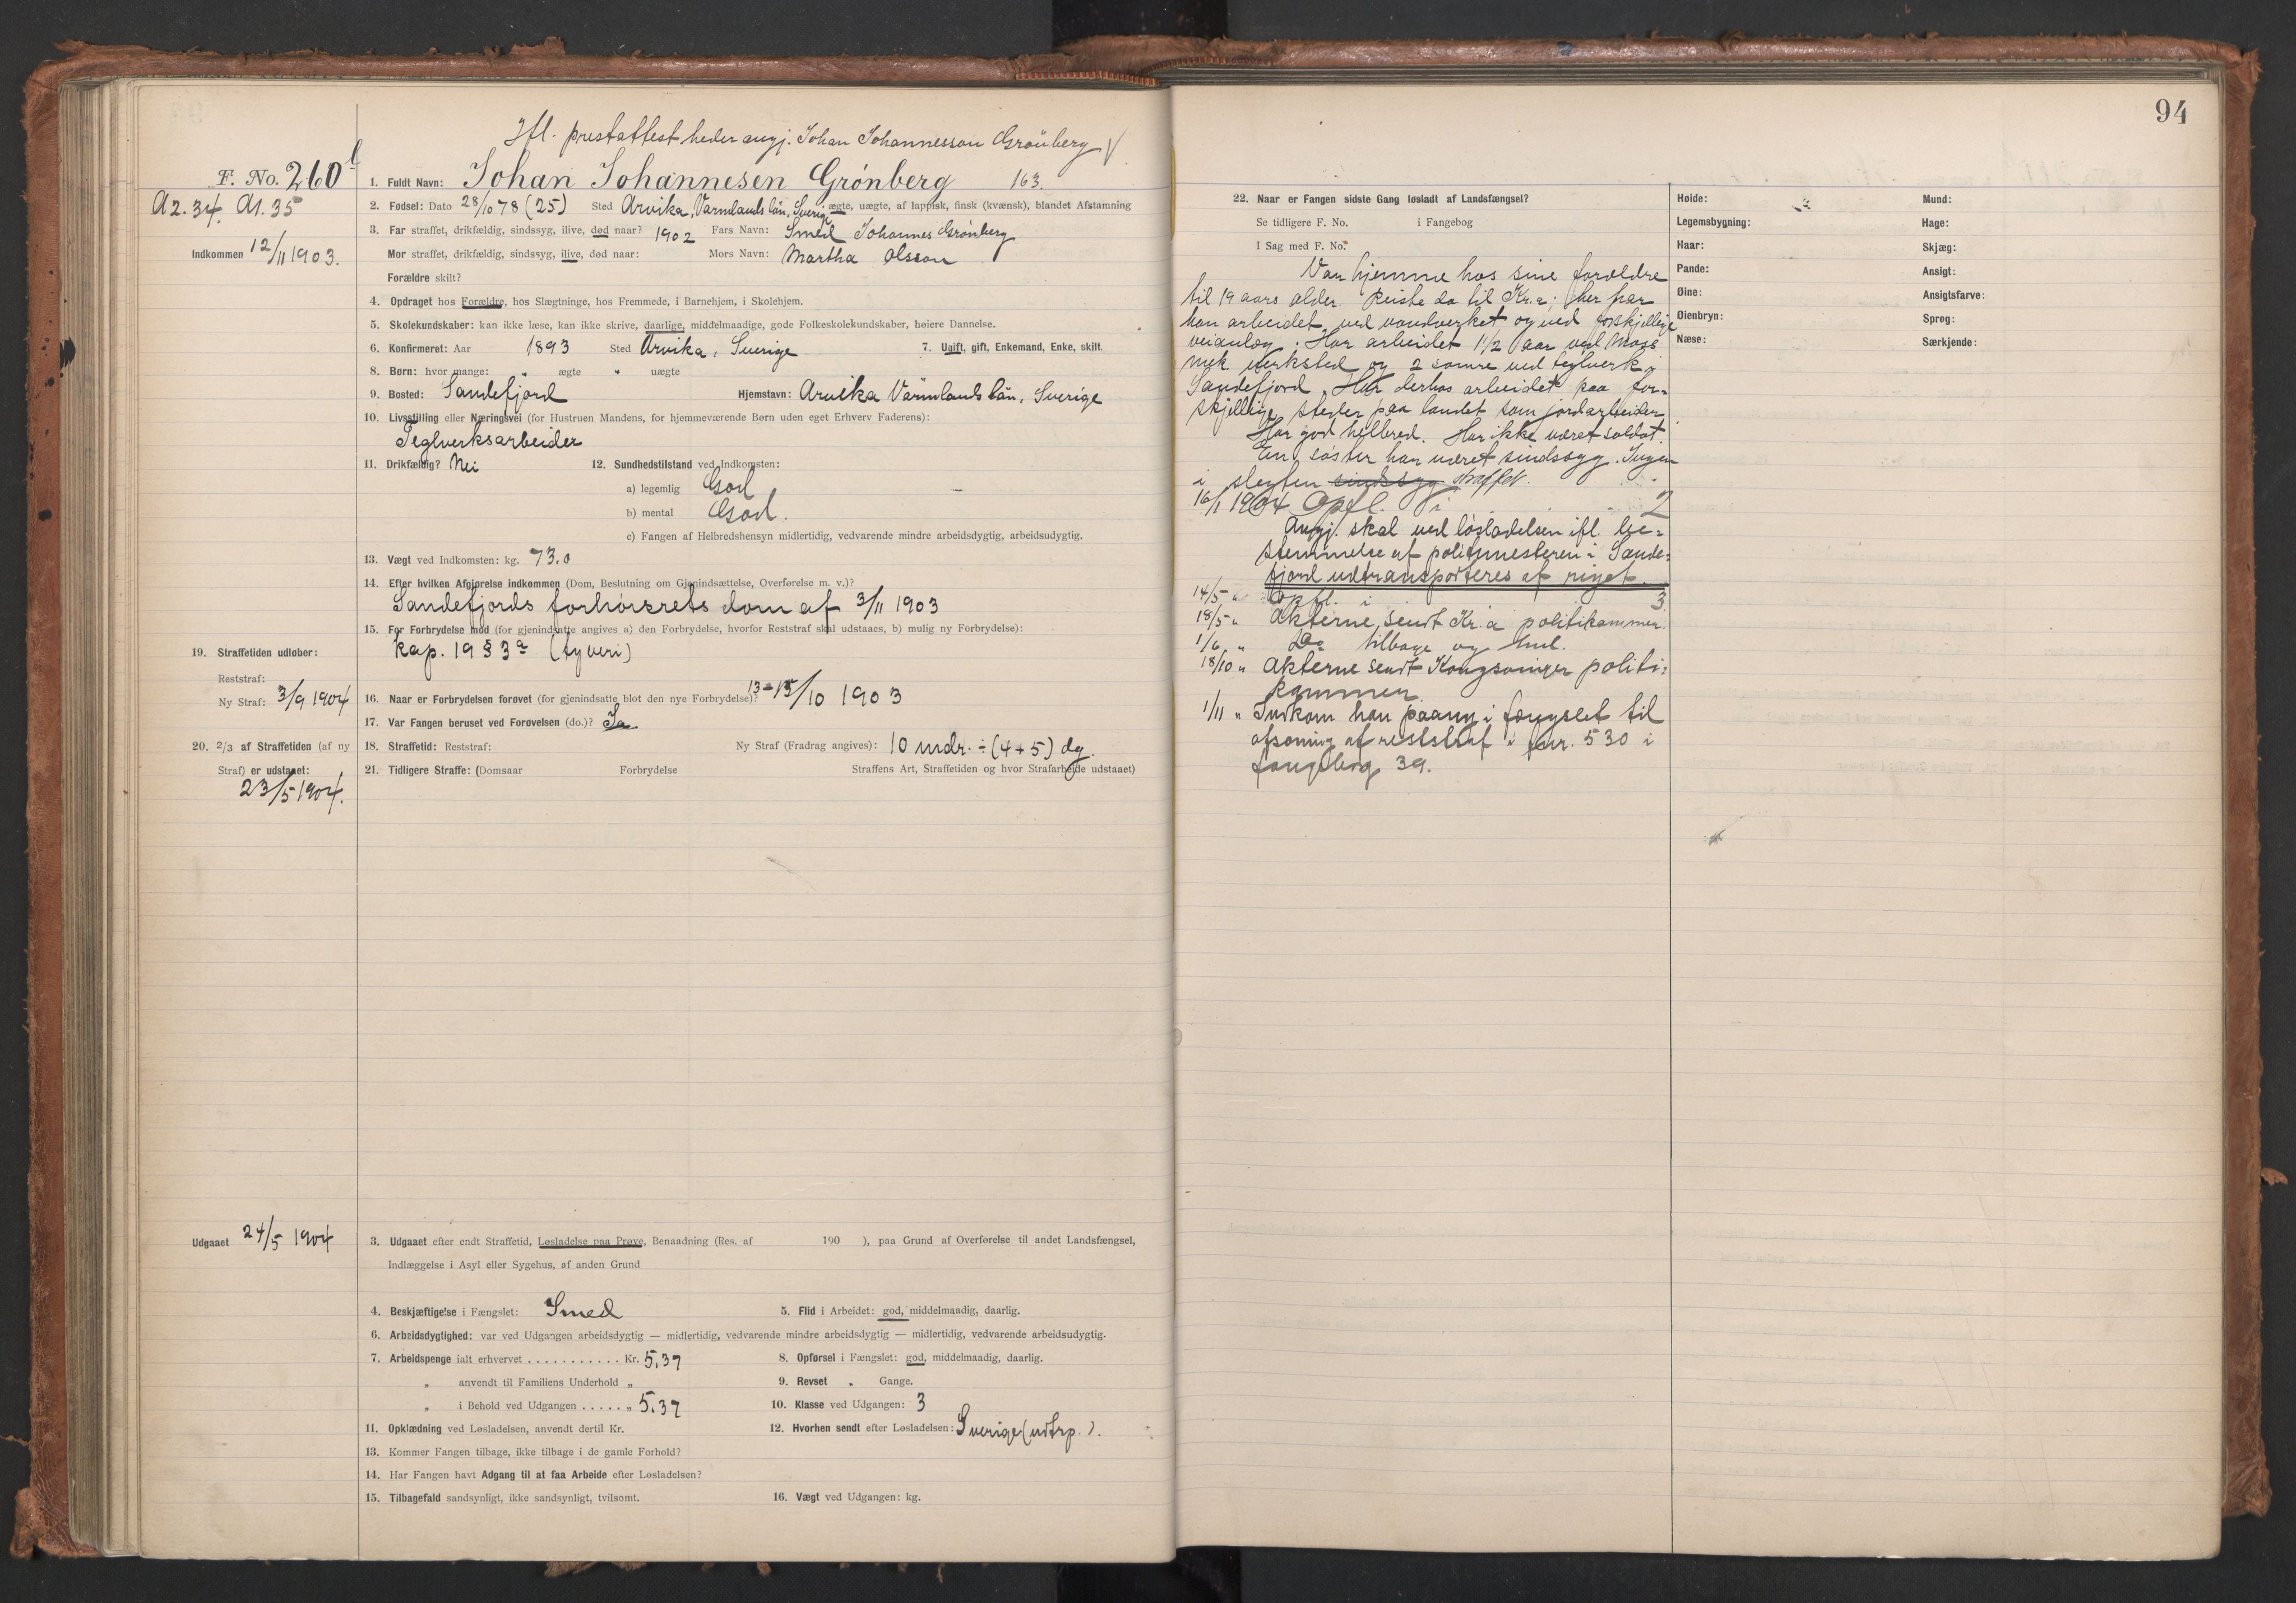 Ifl. prestattest heder angj. Johan Johannesson Grönberg
F. No. 260
1. Fuldt Navn: Johan Johannesen Grønberg 163.
A2.34. A1.35
2. Fødsel: Dato 28/10 78 (25) Sted Arvika, Värmlands län, Sverige ægte, uægte, af lappisk, finsk (kvænsk), blandet Afstamning
3. Far straffet, drikfældig, sindssyg, ilive, død naar? 1902 Fars Navn: Smed Johannes Grønberg
Indkommen 12/11 1903.
Mor straffet, drikfældig, sindssyg, ilive, død naar: Mors Navn: Martha Olsson
Forældre skilt?
4. Opdraget hos Forældre, hos Slægtninge, hos Fremmede, i Barnehjem, i Skolehjem.
5. Skolekundskaber: kan ikke læse, kan ikke skrive, daarlige, middelmaadige, gode Folkeskolekundskaber, høiere Dannelse.
6. Konfirmeret: Aar 1893 Sted Arvika, Sverige 7. Ugift, gift, Enkemand, Enke, skilt.
8. Børn: hvor mange: " ægte " uægte
9. Bosted: Sandefjord Hjemstavn: Arvika Värmlands län, Sverige
10. Livsstilling eller Næringsvei (for Hustruen Mandens, for hjemmeværende Børn uden eget Erhverv Faderens):
Teglverksarbeider
11. Drikfældig? Nei 12. Sundhedstilstand ved Indkomsten:
a) legemlig God
b) mental God.
c) Fangen af Helbredshensyn midlertidig, vedvarende mindre arbeidsdygtig, arbeidsudygtig.
13. Vægt ved Indkomsten: kg. 73.0
14. Efter hvilken Afgjørelse indkommen (Dom, Beslutning om Gjenindsættelse, Overførelse m. v.)?
Sandefjords forhørsrets dom af 3/11 1903
15. For Forbrydelse mod (for gjenindsatte angives a) den Forbrydelse, hvorfor Reststraf skal udstaaes, b) mulig ny Forbrydelse):
kap. 19 § 3a (tyveri)
19. Straffetiden udløber:
Reststraf:
Ny Straf: 3/9 1904
16. Naar er Forbrydelsen forøvet (for gjenindsatte blot den nye Forbrydelse)? 13=15/10 1903
17. Var Fangen beruset ved Forøvelsen (do.)? Ja
20. 2/3 af Straffetiden (af ny Straf) er udstaaet:
23/5 1904.
18. Straffetid: Reststraf: Ny Straf (Fradrag angives): 10 mdr. ÷ (4+5) dg.
21. Tidligere Straffe: (Domsaar Forbrydelse Straffens Art, Straffetiden og hvor Strafarbeide udstaaet)
Udgaaet 24/5 1904
3. Udgaaet efter endt Straffetid, Løsladelse paa Prøve, Benaadning (Res. af 190 ), paa Grund af Overførelse til andet Landsfængsel,
Indlæggelse i Asyl eller Sygehus, af anden Grund
4. Beskjæftigelse i Fængslet: Smed 5. Flid i Arbeidet: god, middelmaadig, daarlig.
6. Arbeidsdygtighed: var ved Udgangen arbeidsdygtig — midlertidig, vedvarende mindre arbeidsdygtig — midlertidig, vedvarende arbeidsudygtig.
7. Arbeidspenge ialt erhvervet . . . . . . . . . . . Kr. 5.37 8. Opførsel i Fængslet: god, middelmaadig, daarlig.
" anvendt til Familiens Underhold " 9. Revset " Gange.
" i Behold ved Udgangen . . . . . " 5.37 10. Klasse ved Udgangen: 3
11. Opklædning ved Løsladelsen, anvendt dertil Kr. 12. Hvorhen sendt efter Løsladelsen: Sverige (udtrp.).
13. Kommer Fangen tilbage, ikke tilbage i de gamle Forhold?
14. Har Fangen havt Adgang til at faa Arbeide efter Løsladelsen?
15. Tilbagefald sandsynligt, ikke sandsynligt, tvilsomt. 16. Vægt ved Udgangen: kg.
94
22. Naar er Fangen sidste Gang løsladt af Landsfængsel?
Se tidligere F. No. i Fangebog
I Sag med F. No.
Var hjemme hos sine forældre
til 19 aars alder. Reiste da til Kr.a; her har
han arbeidet ved vandverket og ved forskjellige
veianlæg. Har arbeidet 1 1/2 aar ved Moss
mek verksted og 2 somre ved teglverk i
Sandefjord. Har derhos arbeidet paa for=
skjellige steder paa landet som jordarbeider.
Har god helbred. Har ikke været soldat.
En søster har været sindssyg. Ingen
i slegten sindssyg straffet.
16/1 1904 Opfl. i 2
Angj. skal ved løsladelsen ifl. be=
stemmelse af politimesteren i Sande=
fjord udtransporteres af riget.
14/5 " Opfl. i 3
18/5 " Akterne sendt Kr.a politikammer.
1/6 " Do tilbage og hul.
18/10 " Akterne sendt Kongsvinger politi=
kammer.
1/11 " Indkom han paany i fængslet til
afsoning af reststraf i fnr. 530 i
fangebog 39.
Høide:
Legemsbygning:
Haar:
Pande:
Øine:
Øienbryn:
Næse:
Mund:
Hage:
Skjæg:
Ansigt:
Ansigtsfarve:
Sprog:
Særkjende: